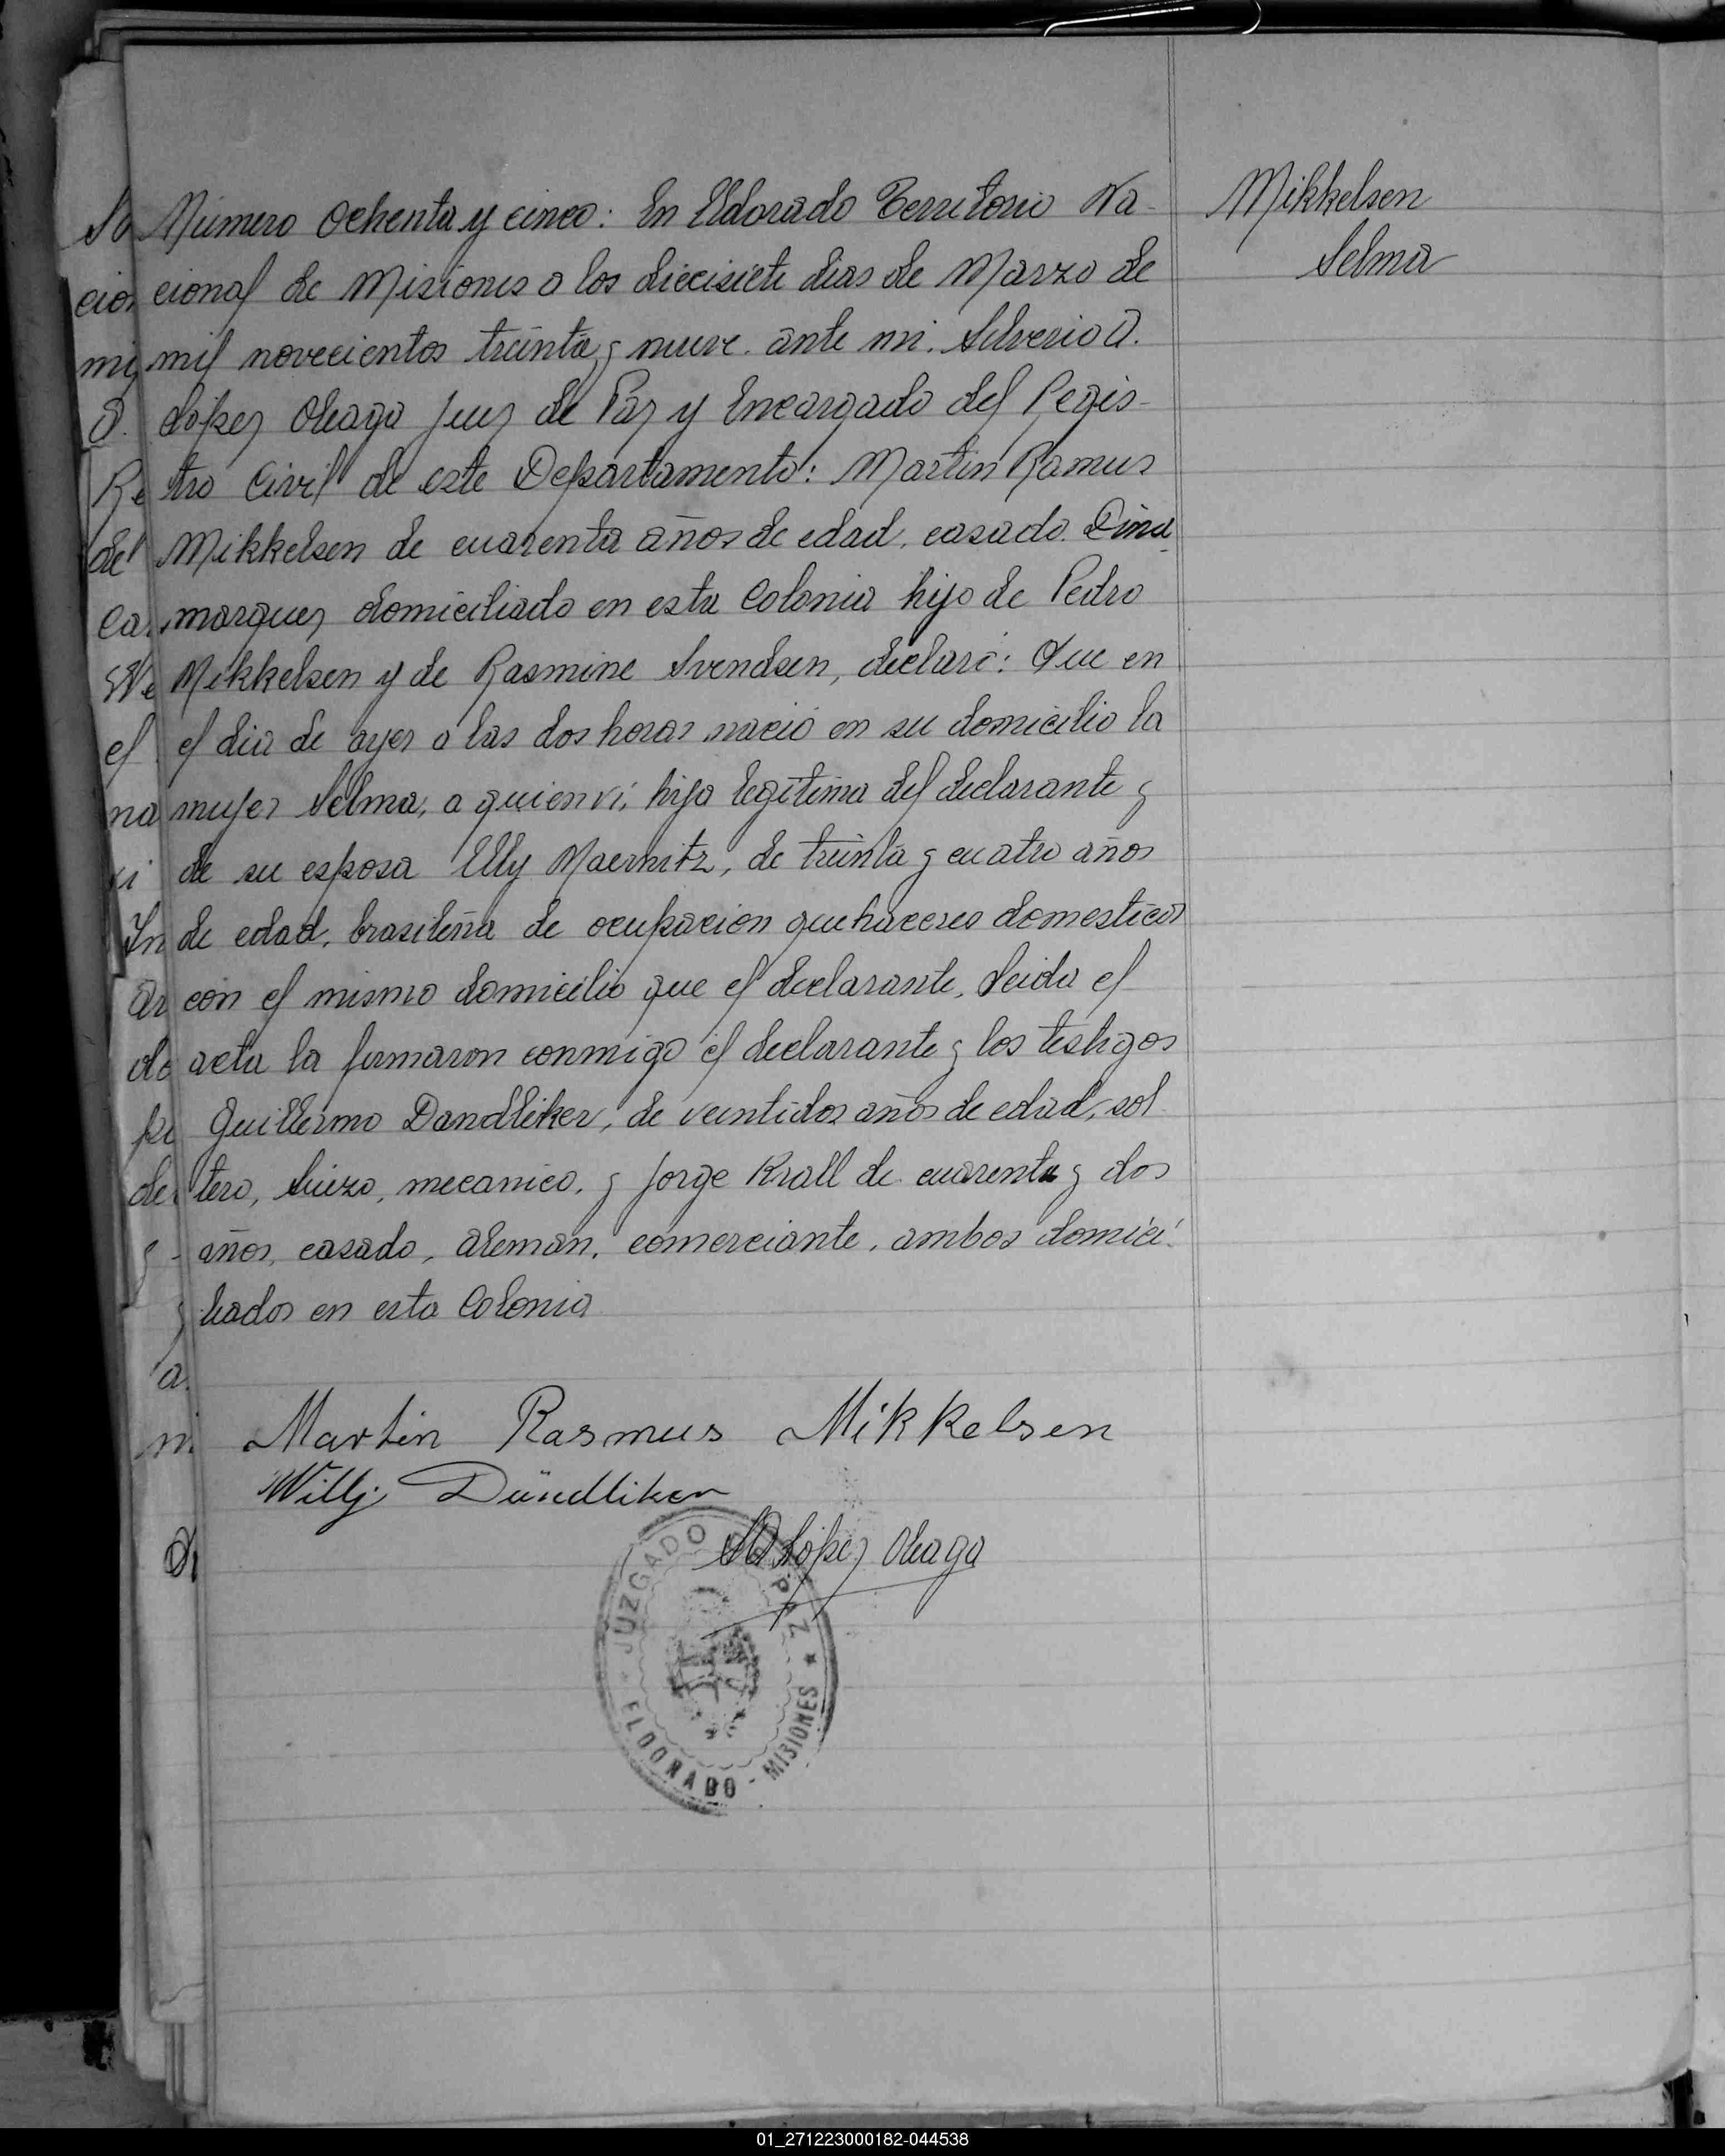 Mikkelsen
Selma
Número Ochenta y cinco: En Eldorado Territorio Na-
cional de Misiones a los diecisiete dias de Marzo de
mil novecientos treinta y nueve. ante mi. Silverio O.
López Oleaga Juez de Paz y Encargado del Regis-
tro Civil de este Departamento: Martin Ramus
Mikkelsen de cuarenta años de edad, casado. Dina
marquez domiciliado en esta Colonia hijo de Pedro
Mikkelsen y de Rasmine Svendsen, declaró: Que en
el dia de ayer a las dos horas nació en su domicilio la
mujer Selma, a quien vi, hija legítima del declarante y
de su esposa Elly Maernitz, de treinta y cuatro años
de edad, brasileña de ocupacion quehaceres domesticos
con el mismo domicilio que el declarante. Leida el
acta la firmaron conmigo el declarante y los testigos
Guillermo Dandliker, de veintidos años de edad, sol
tero, Suizo, mecanico, y Jorge Krall de cuarenta y dos
años, casado, Aleman, comerciante, ambos domici-
liados en esta Colonia
Martin Rasmus Mikkelsen
Willy Dändliker
López Oleaga
JUZGADO DE PAZ
ELDORADO - MISIONES
01_271223000182-044538